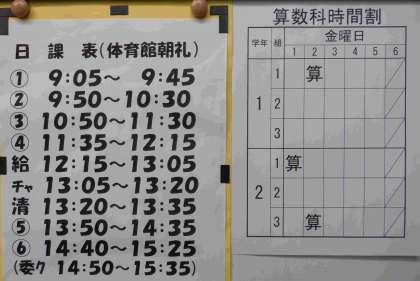 日 課 表(体育館朝礼)
① 9:05～ 9:45
② 9:50～10:30
③ 10:50～11:30
④ 11:35～12:15
給 12:15～13:05
チャ 13:05～13:20
清 13:20～13:35
⑤ 13:50～14:35
⑥ 14:40～15:25
(委ク 14:50～15:35)
算数科時間割
学年 組 金曜日
1 2 3 4 5 6
1 1 算
2
3
2 1 算
2
3 算